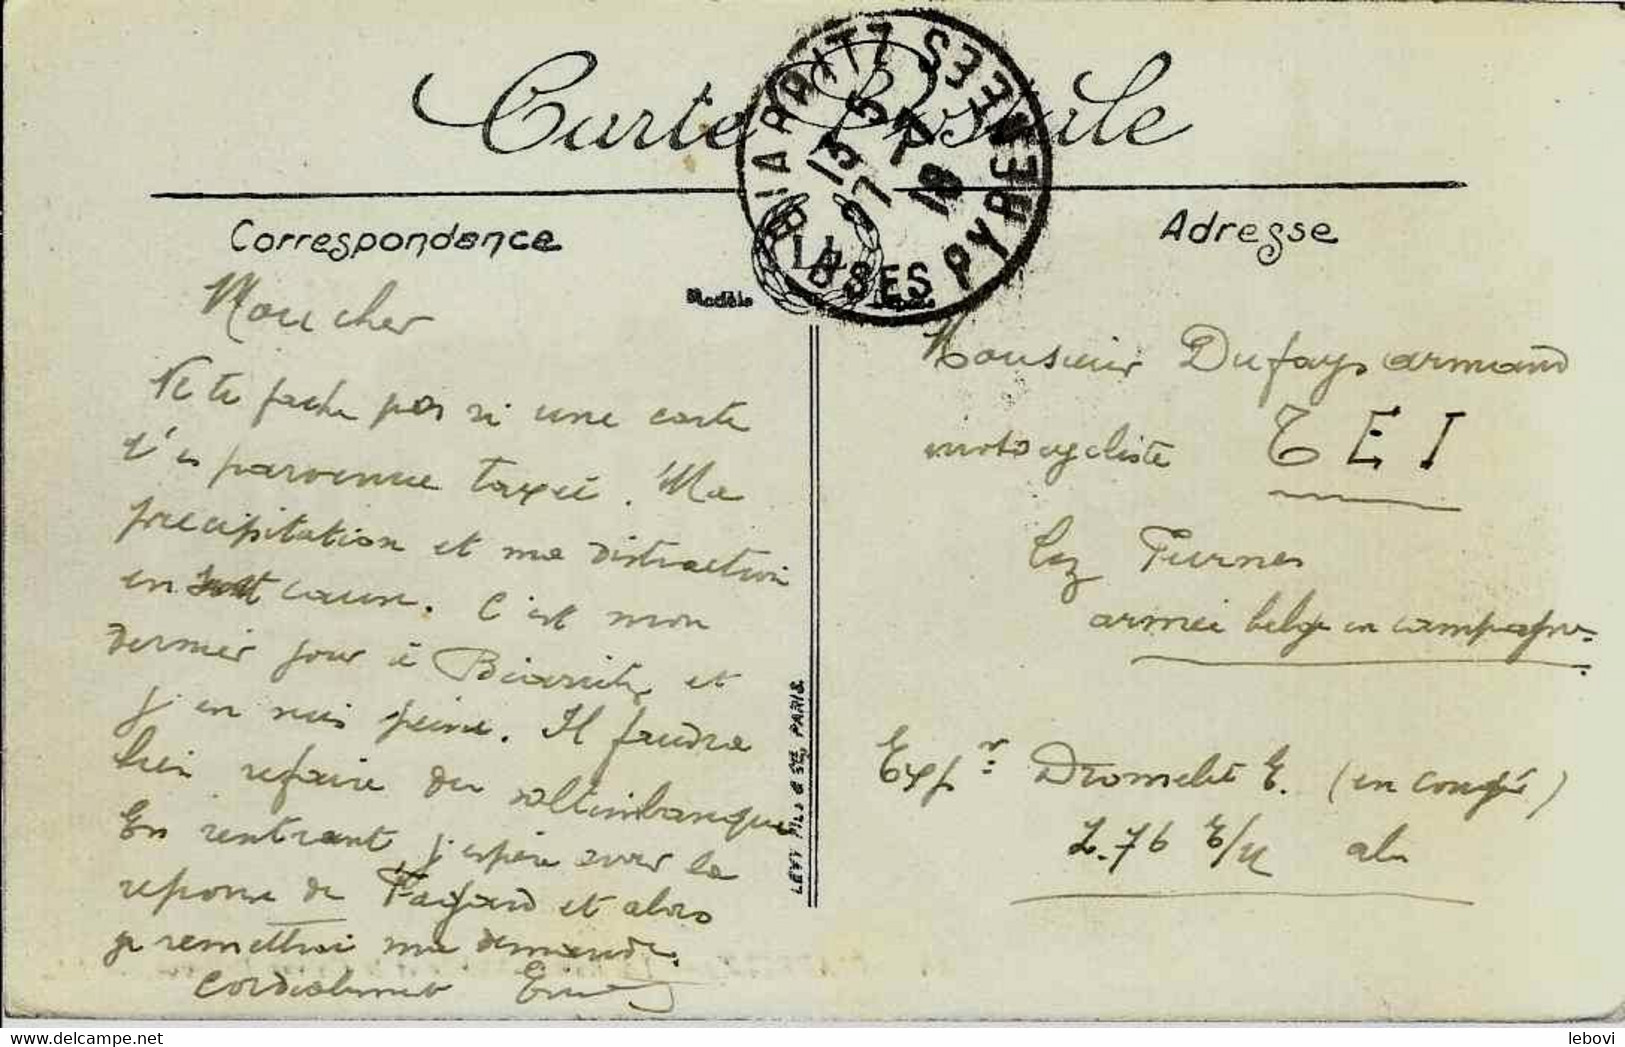 Carte Postale
BIARRITZ BSES PYRENEES
13 5
7 7 18
Correspondance
Adresse
LL
Modèle
Mon cher
Ne te fache pas si une carte
t'es parvenue taxée. Ma
précipitation et ma distraction
en sont cause. C'est mon
dernier jour à Biarritz et
j'en suis peiné. Il faudra
bien refaire du saltimbanque
En rentrant j'espère avoir la
reponse de Fayard et alors
je remettrai ma demande.
Cordialement
LÉVY FILS & CIE, PARIS.
Monsieur Dufays armand
motocycliste T E I
Furnes
armée belge en campagne.
Expr: E. (en congé)
Z.76 E/M
lebovi